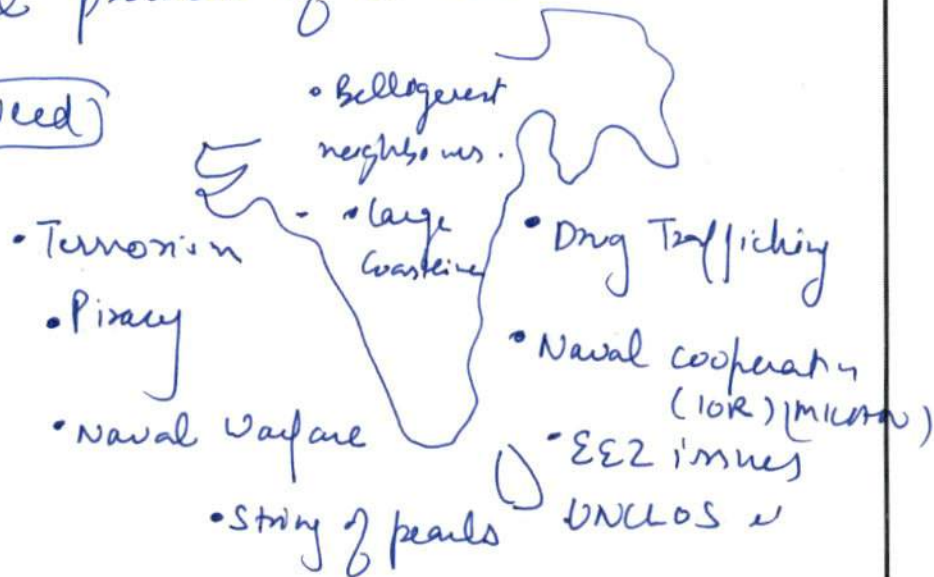 Need
• Belligerent
neighbours.
• Large
Coastline
• Terrorism
• Piracy
• Naval Warfare
• String of pearls
• Drug Trafficking
• Naval cooperation
(IOR) (MILAN)
• EEZ issues
UNCLOS